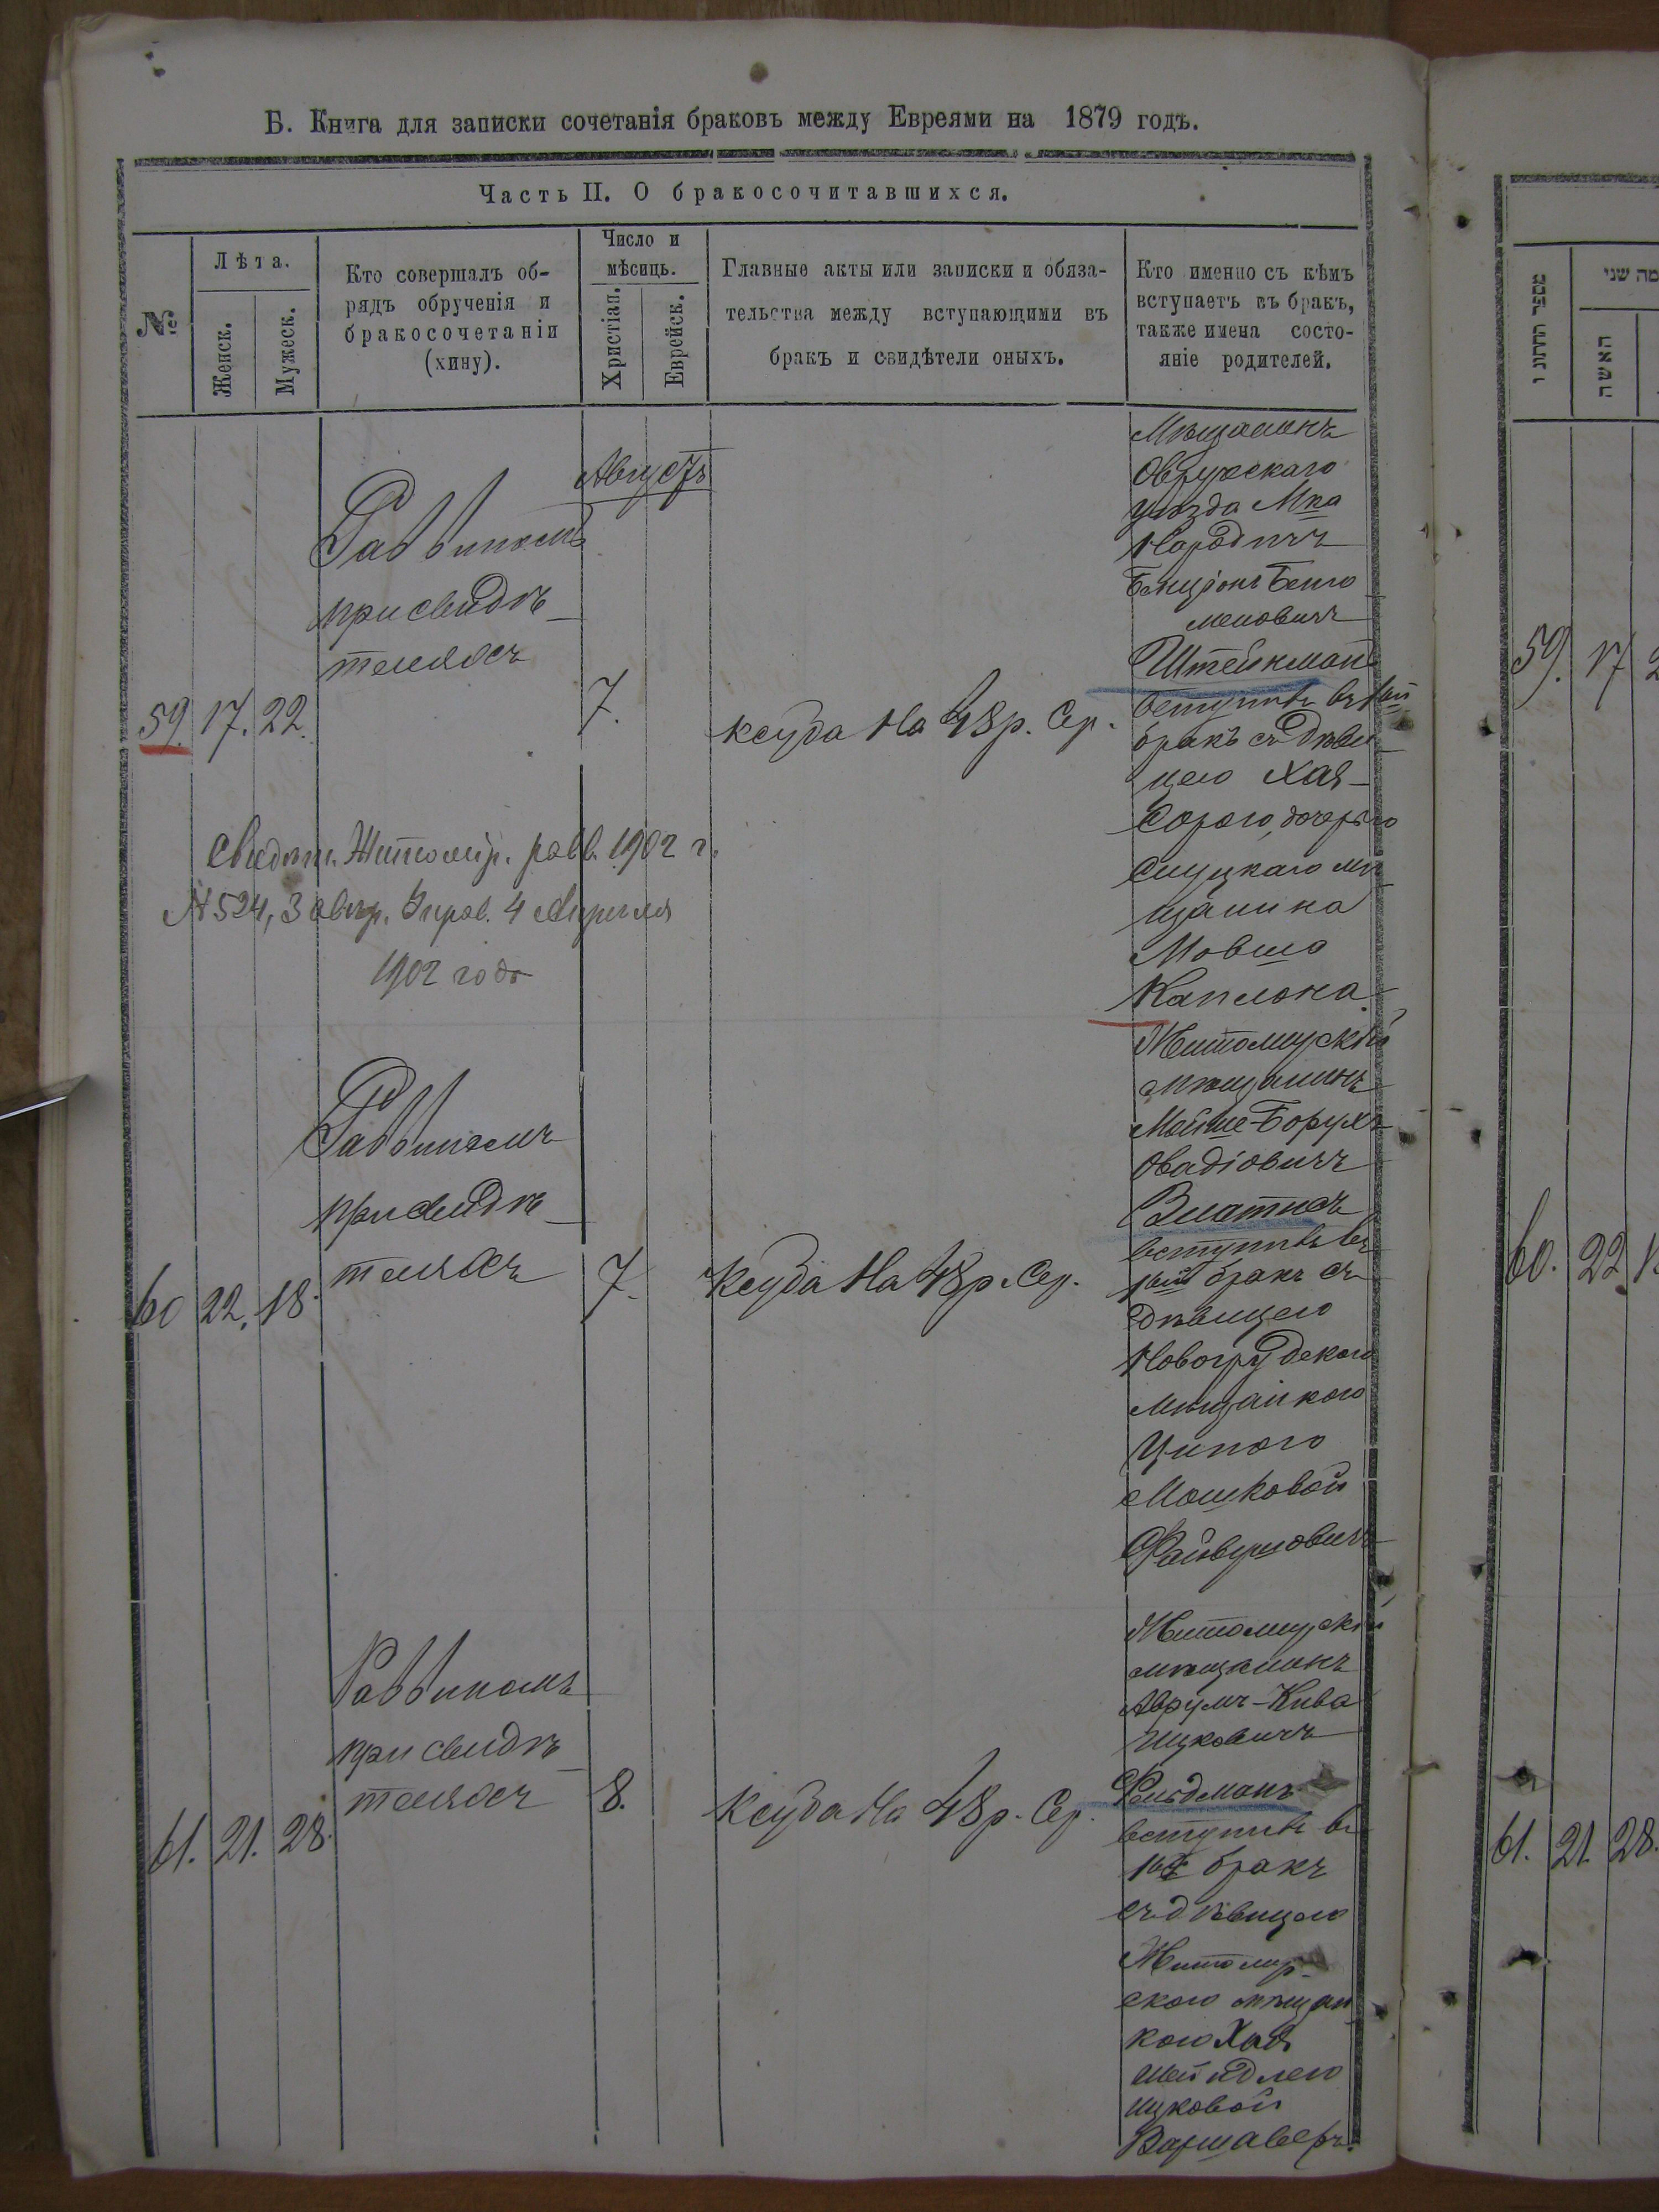 Б. Книга для записки сочетанія браковъ между Евреями на 1879 годъ.
Часть II. О бракосочитавшихся.
№
Лѣта.
Женск.
Мужеск.
Кто совершалъ об-
рядъ обрученія и
бракосочетаніи
(хину).
Число и
мѣсяць.
Христіан.
Еврейск.
Главные акты или записки и обяза-
тельства между вступающими въ
бракъ и свидѣтели оныхъ.
Кто именно съ кѣмъ
вступаетъ въ бракъ,
также имена состо-
яніе родителей.
Августъ
59. 17. 22.
Раввиномъ
при свидѣ-
теляхъ
7.
ксуба на 48 р. Сер.
Мѣщанинъ
Овручскаго
уѣзда Мка
Народичъ
Бенціонъ Бенго
меновичъ
Штейнманъ
вступилъ въ 1ый
бракъ съ дѣви
цею Хая-
Сорою, дочерью
Слуцкаго мѣ
щанина
Мовша
Каплана.
Свидѣт. Житомір. равв. 1902 г.
№ 524, 3 Апр. 4 Апрѣля
1902 года
60 22. 18.
Раввиномъ
при свидѣ-
теляхъ
7.
Ксуба на 48 р. Сер.
Житомирскій
мѣщанинъ
Мойше-Борухъ
Овадіовичъ
Злотникъ
вступилъ въ
1ый бракъ съ
дѣвицею
Новогрудскою
мѣщанкою
Ципою
Мошковой
Файвушовичъ
61. 21. 28.
Раввиномъ
при свидѣ-
теляхъ
8.
Ксуба на 48 р. Сер.
Житомирскій
мѣщанинъ
Аврумъ-Кива
Ицковичъ
Фельдманъ
вступилъ въ
1ый бракъ
съ дѣвицею
Житомир-
скою мѣщан
кою Хая
Шейндлею
Ицковой
Варшаверъ.
מספר
האשה
59. 17
60. 22
61. 21. 28.